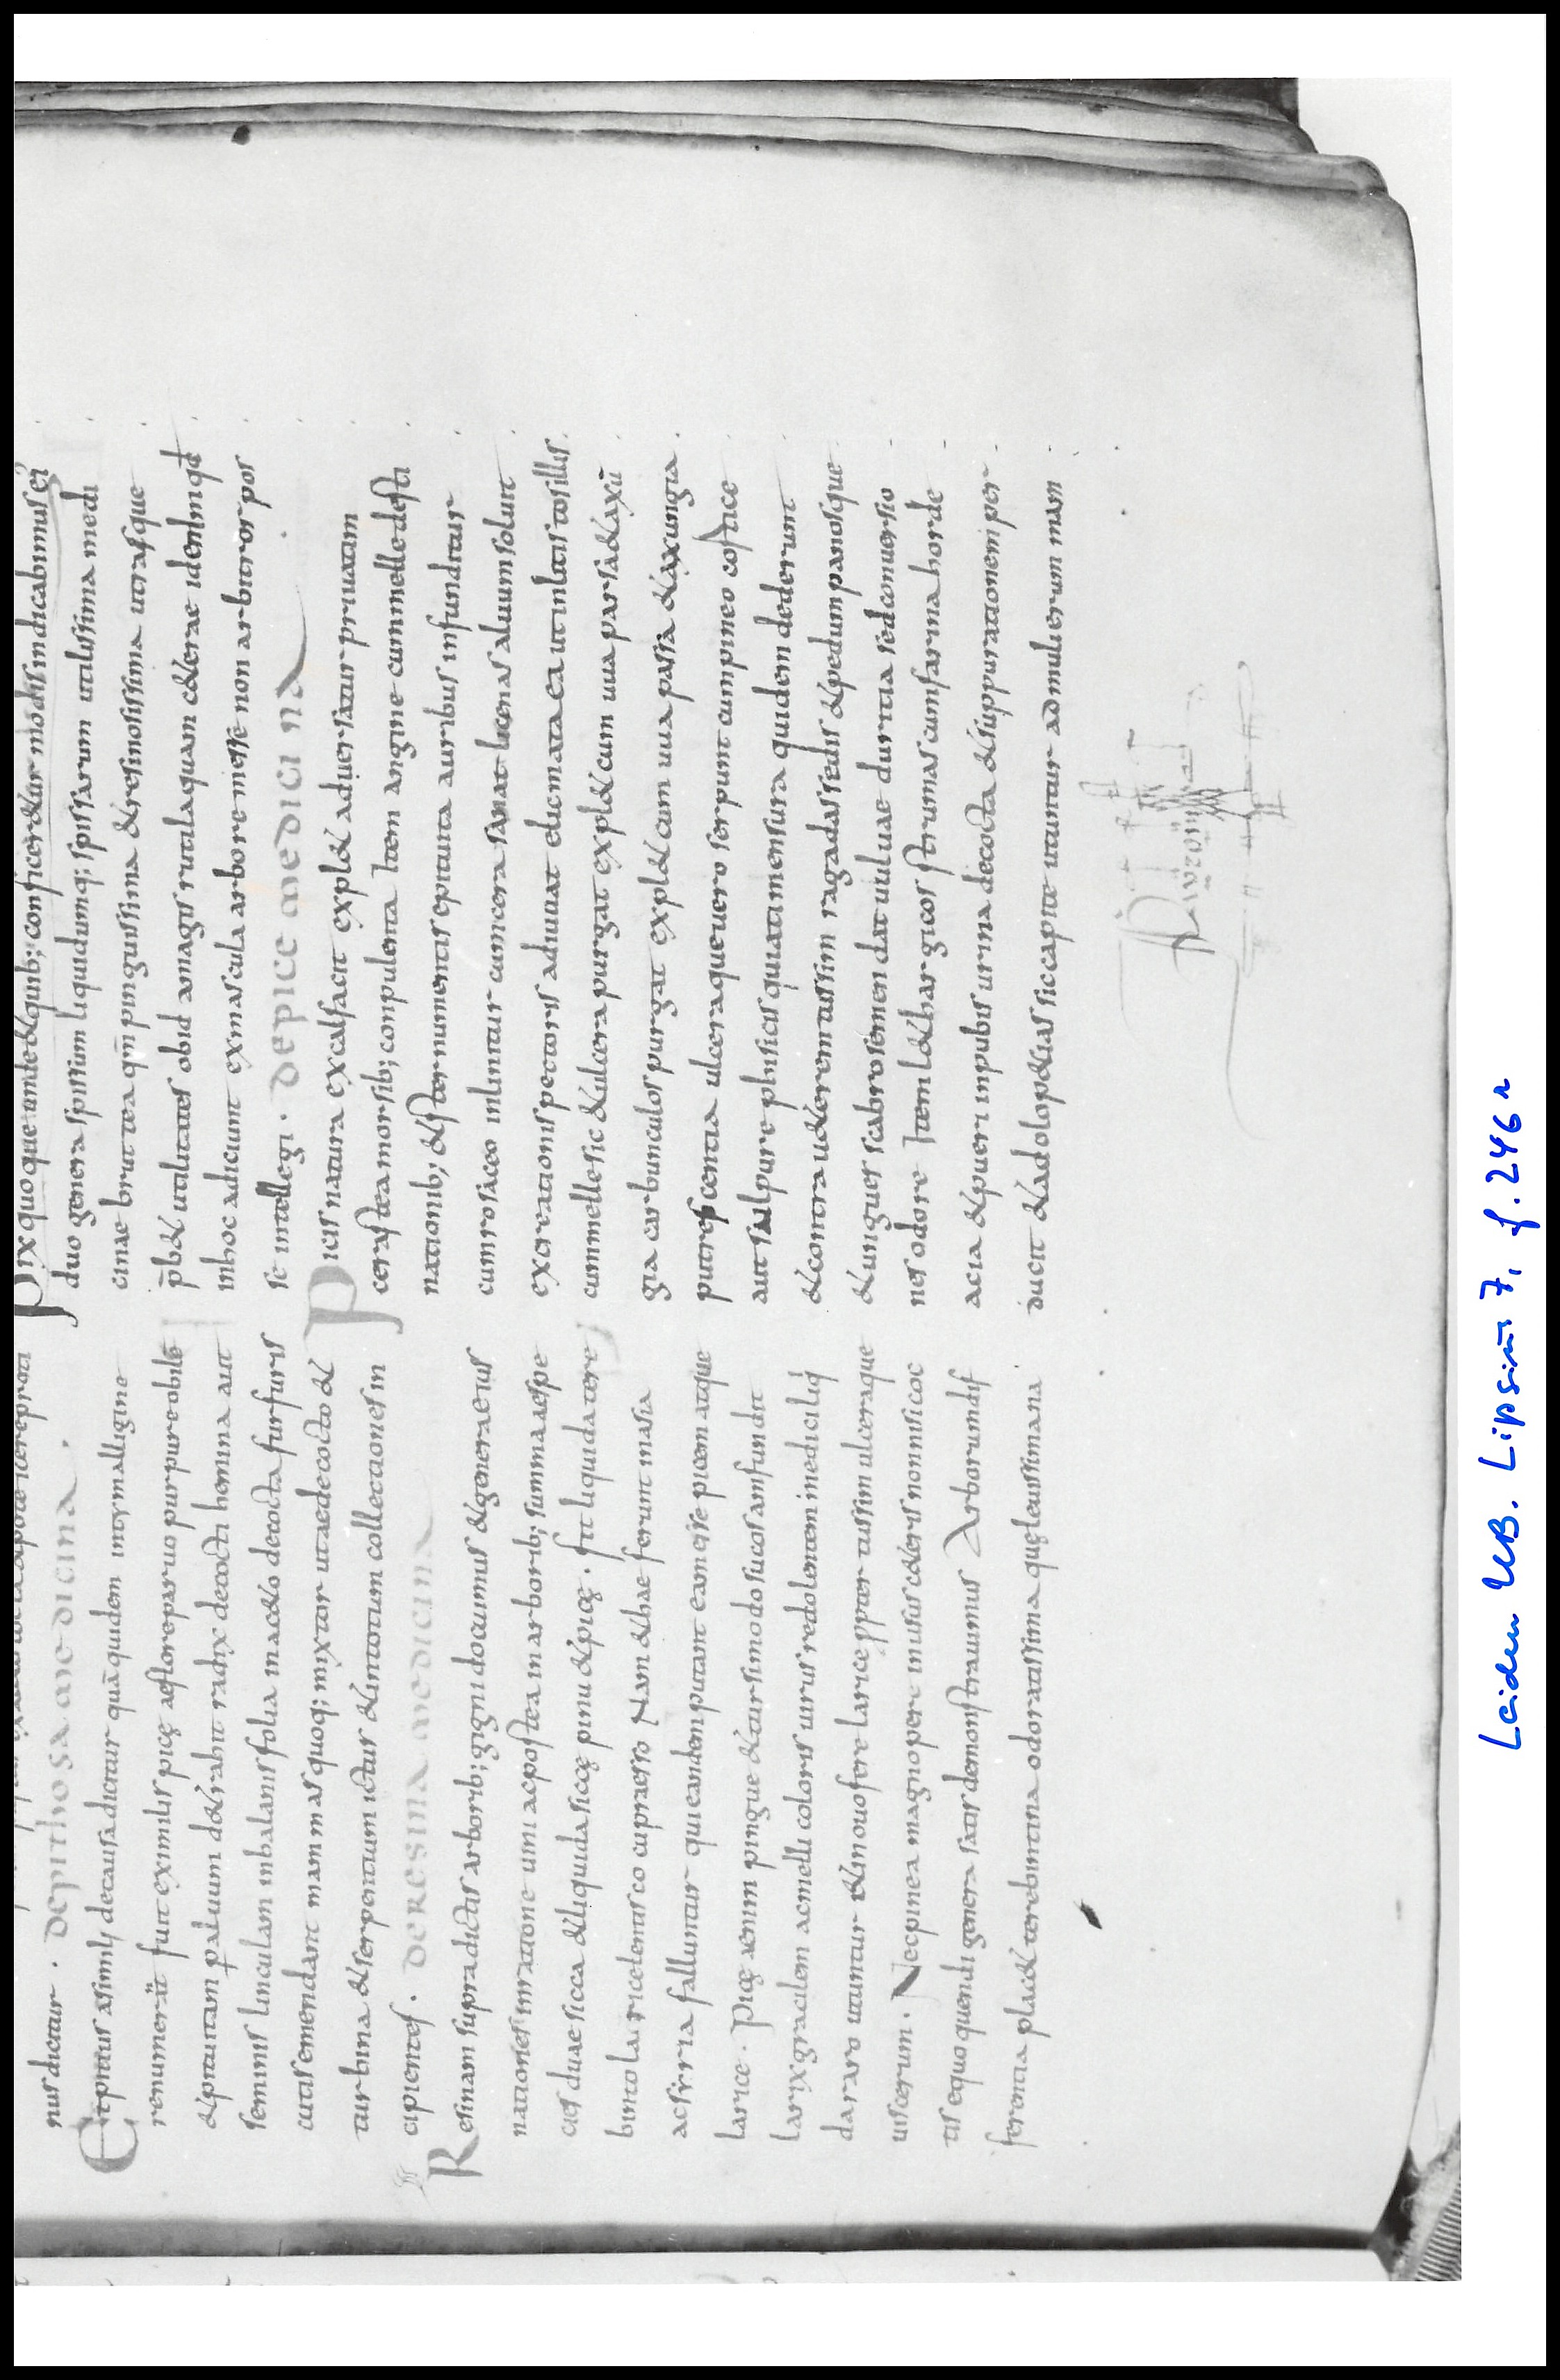 nusdicitur . depithosa medicina .
Epitius asimili decausadicitur quāquidem intymalligine
renumerāt fuit eximilis picę aefloreparuo purpureobile
&pituitam paluum d&rahit radix decocti hemina aut
seminis linculam inbalanis folia inac&o decocta furfuris
cutisemendant mammas quoq; mixtar utaedecocto &
turbina &serpentium ictus &intotum collectiones in
cipientes . deresina medicina
Resinam supradictis arborib; gigni docuimus &generaeius
nationes inratione uini acpostea in arborib; summaespe
cies duae sicca &liquida siccę pinu &picę . fit liquida tere
binto larice lentisco cupraesso Nam &hae ferunt inasia
acsirria falluntur qui eandem putant eam esse picem atque
larice . Picę aenim pingue &turismodo sucosamfundit
larix gracilem acmelli coloris uirus redolentem inedici liq
da raro utuntur &inouo fere larice ppter tussim ulceraque
uiscerum . Nec pinea magnopere inusus c&eris nonnisicoc
tis equo quendi genera satis demonstrauimus Arborumdif
ferentia plac&terebintina odoratissima quęleuissimana
Pix quoque unde &quib; conficer&ur modis indicabimus ei
duo genera spissum liquidumq; spissarum utilissima medi
cinae bruttea qm̄ pinguissima &resinosissima utrasque
p̄b& utilitates obid amagis rutila quam c&erae idem mqd
inhoc adiciunt exmascula arbore messe non arbitror pos
se intellegi . depice medicina
Picis natura excalfacit expl& aduersatur priuatam
cerastea morsib; conpulenta Item angine cummelle desti
nationib; &sternumentis epituita auribus infunditur
cumrosaceo inlinitur cumcera sanat licenas aluum soluit
excreationis pectoris adiuuat elicmata ea utinlitis tosillis
cummelle sic &ulcera purgat expl&cum uua parsa&axū
gia carbunculos purgat expl&cum uua passa &axungia
putrescentia ulceraque uero serpunt cum pineo cortice
aut sulpure plusicis quiati mensura quidem dederunt
&contra u&erem tussim ragadas sedis &pedum panosque
&ungues scabros emendat uuluae duritia sed conuersio
nes odore Item l&hargicos strumas cum farina horde
acia &pueri inpubis urina decocta &suppurationem per
ducit &adolop&ias sic capite utuntur admulierum mam
Leiden UB. Lipsius 7, f. 246r